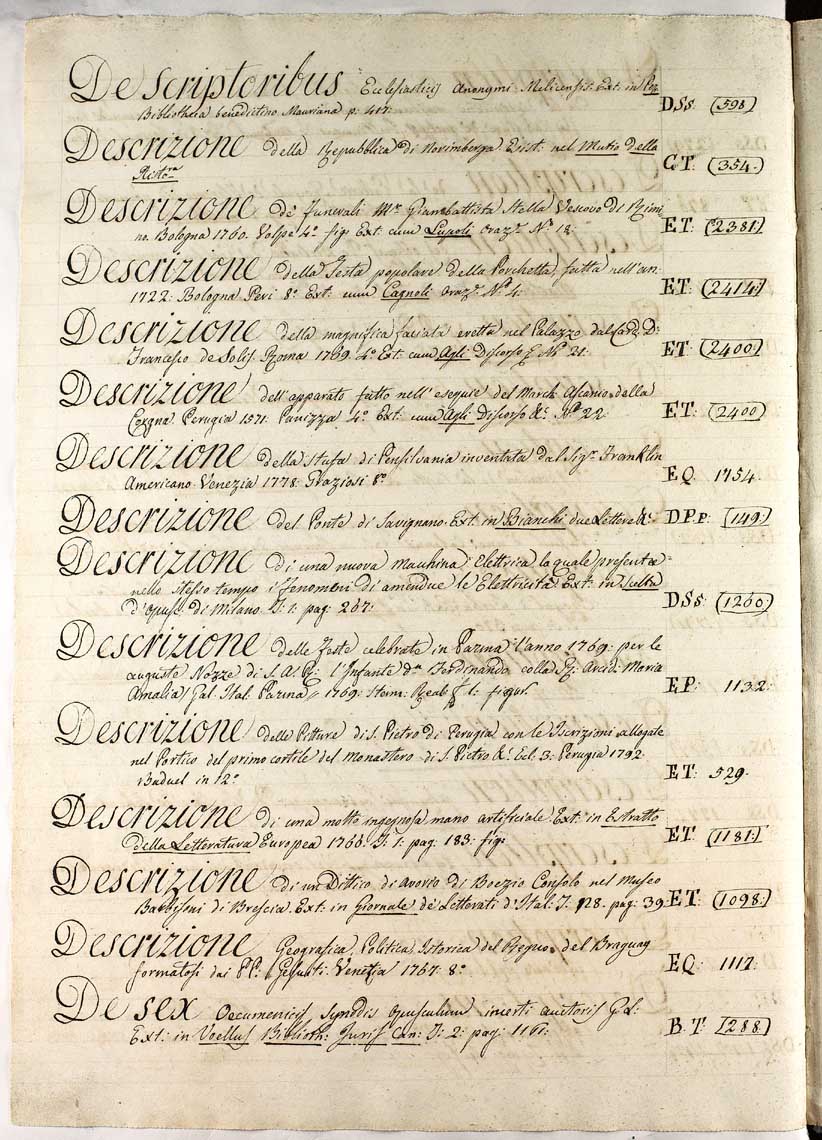 De scriptoribus Ecclesiasticis Anonymi Melicensis. Ext: in Pez
Bibliotheca benedictino Mauriana p: 417: DSs. (598)
Descrizione della Repubblica di Norimberga Exist: nel Mutio della
Ristor.ne GT: (354.)
Descrizione de' Funerali Mr. Giambattista Stella Vescovo di Rimi
no. Bologna 1760. Volpe 4.° fig: Ext: cum Lupoli Oraz.e N.° 18: ET: (2381:)
Descrizione della Festa popolare della Porchetta, fatta nell'an:
1722: Bologna Peri 8.° Ext: cum Cagnoli Oraz.e N.° 4: ET: (2414:)
Descrizione della magnifica faciata eretta nel Palazzo dal Card: D:
Francesco de Solis. Roma 1769. 4.° Ext: cum Agli Discorso &. N.° 21: ET: (2400:)
Descrizione dell'apparato fatto nell'esequie del March. Ascanio della
Corgna. Perugia 1571: Panizza 4.° Ext: cum Agli Discorso &: N.° 22. ET: (2400)
Descrizione della Stufa di Pensilvania inventata dal Sig.r Franklin
Americano. Venezia 1778: Graziosi 8.° EQ. 1754.
Descrizione del Ponte di Savignano. Ext: in Bianchi due Lettere &: DPp: (149:)
Descrizione di una nuova Macchina Elettrica la quale presenta
nello stesso tempo i Fenomeni di amendue le Elettricità Ext: in Scelta
d'Opusc: di Milano. T: 1: pag: 267: DSs: (1260)
Descrizione delle Feste celebrate in Parma l'anno 1769: per le
auguste Nozze di S. A: R: l'Infante dn. Ferdinando colla R: Arcid: Maria
Amalia. Gal. Ital. Parma 1769: Stam: Reale f. 1: figur. EP: 1132:
Descrizione delle Pitture di S. Pietro di Perugia con le Iscrizioni allogate
nel Portico del primo cortile del Monastero di S. Pietro &: Ed: 3: Perugia 1792.
Baduel in 12.° ET: 529.
Descrizione di una molto ingegnosa mano artificiale Ext: in Estratto
della Letteratura Europea 1766. T: 1: pag: 183: fig: ET: (1181:)
Descrizione di un Dittico di avorio di Boezio Consolo nel Museo
Barbisoni di Brescia. Ext: in Giornale de' Letterati d'Ital. T: 28. pag: 39: ET: (1098:)
Descrizione Geografica, Politica, Istorica del Regno del Braguay
formatosi dai PP: Gesuiti. Venezia 1767: 8.° EQ: 1112.
De sex Oecumenicis Synodis opusculum incerti auctoris Gd:
Ext: in Voellus Biblioth: Juris Can: T: 2: pag: 1161: BT: (288)